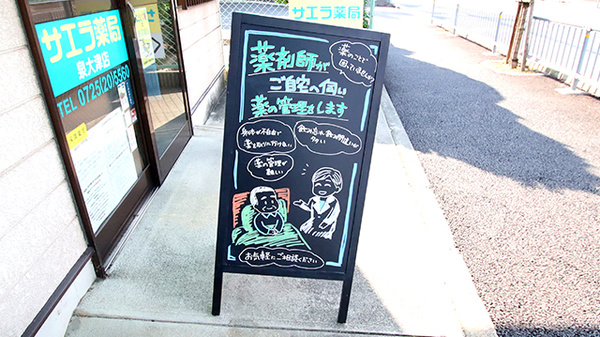 サエラ薬局
泉大津店
TEL 0725(20)5560
サエラ薬局
薬のことで
困っていませんか?
薬剤師が
ご自宅へ伺い
薬の管理をします
身体が不自由で
薬を取りに行けない
飲み忘れ、飲み間違いが
多い
薬の管理が
難しい
お気軽にご相談ください